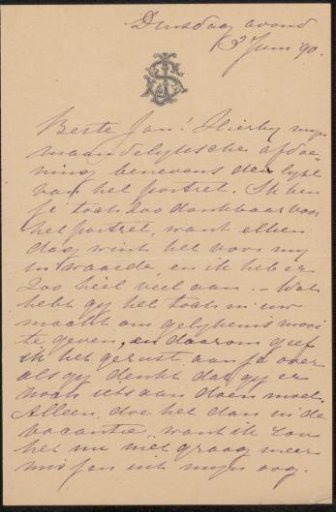 Dinsdag avond
3 Juni 90.
Beste Jan! Hierby myn
maandelyksche afdoe-
ning benevens den lyst
van het portret. Ik ben
je toch zoo dankbaar voor
het portret, want elken
dag wint het voor my
in waarde, en ik heb er
zoo heel veel aan. – Wat
hebt gy het toch in uw
macht om gelykenis mooi
te geven, en daarom geef
ik het gerust aan je over
als gy denkt dat gy er
noch iets aan doen moet.
Alleen, doe het dan in de
vacantie, want ik zou
het nu niet graag meer
missen uit myn oog.